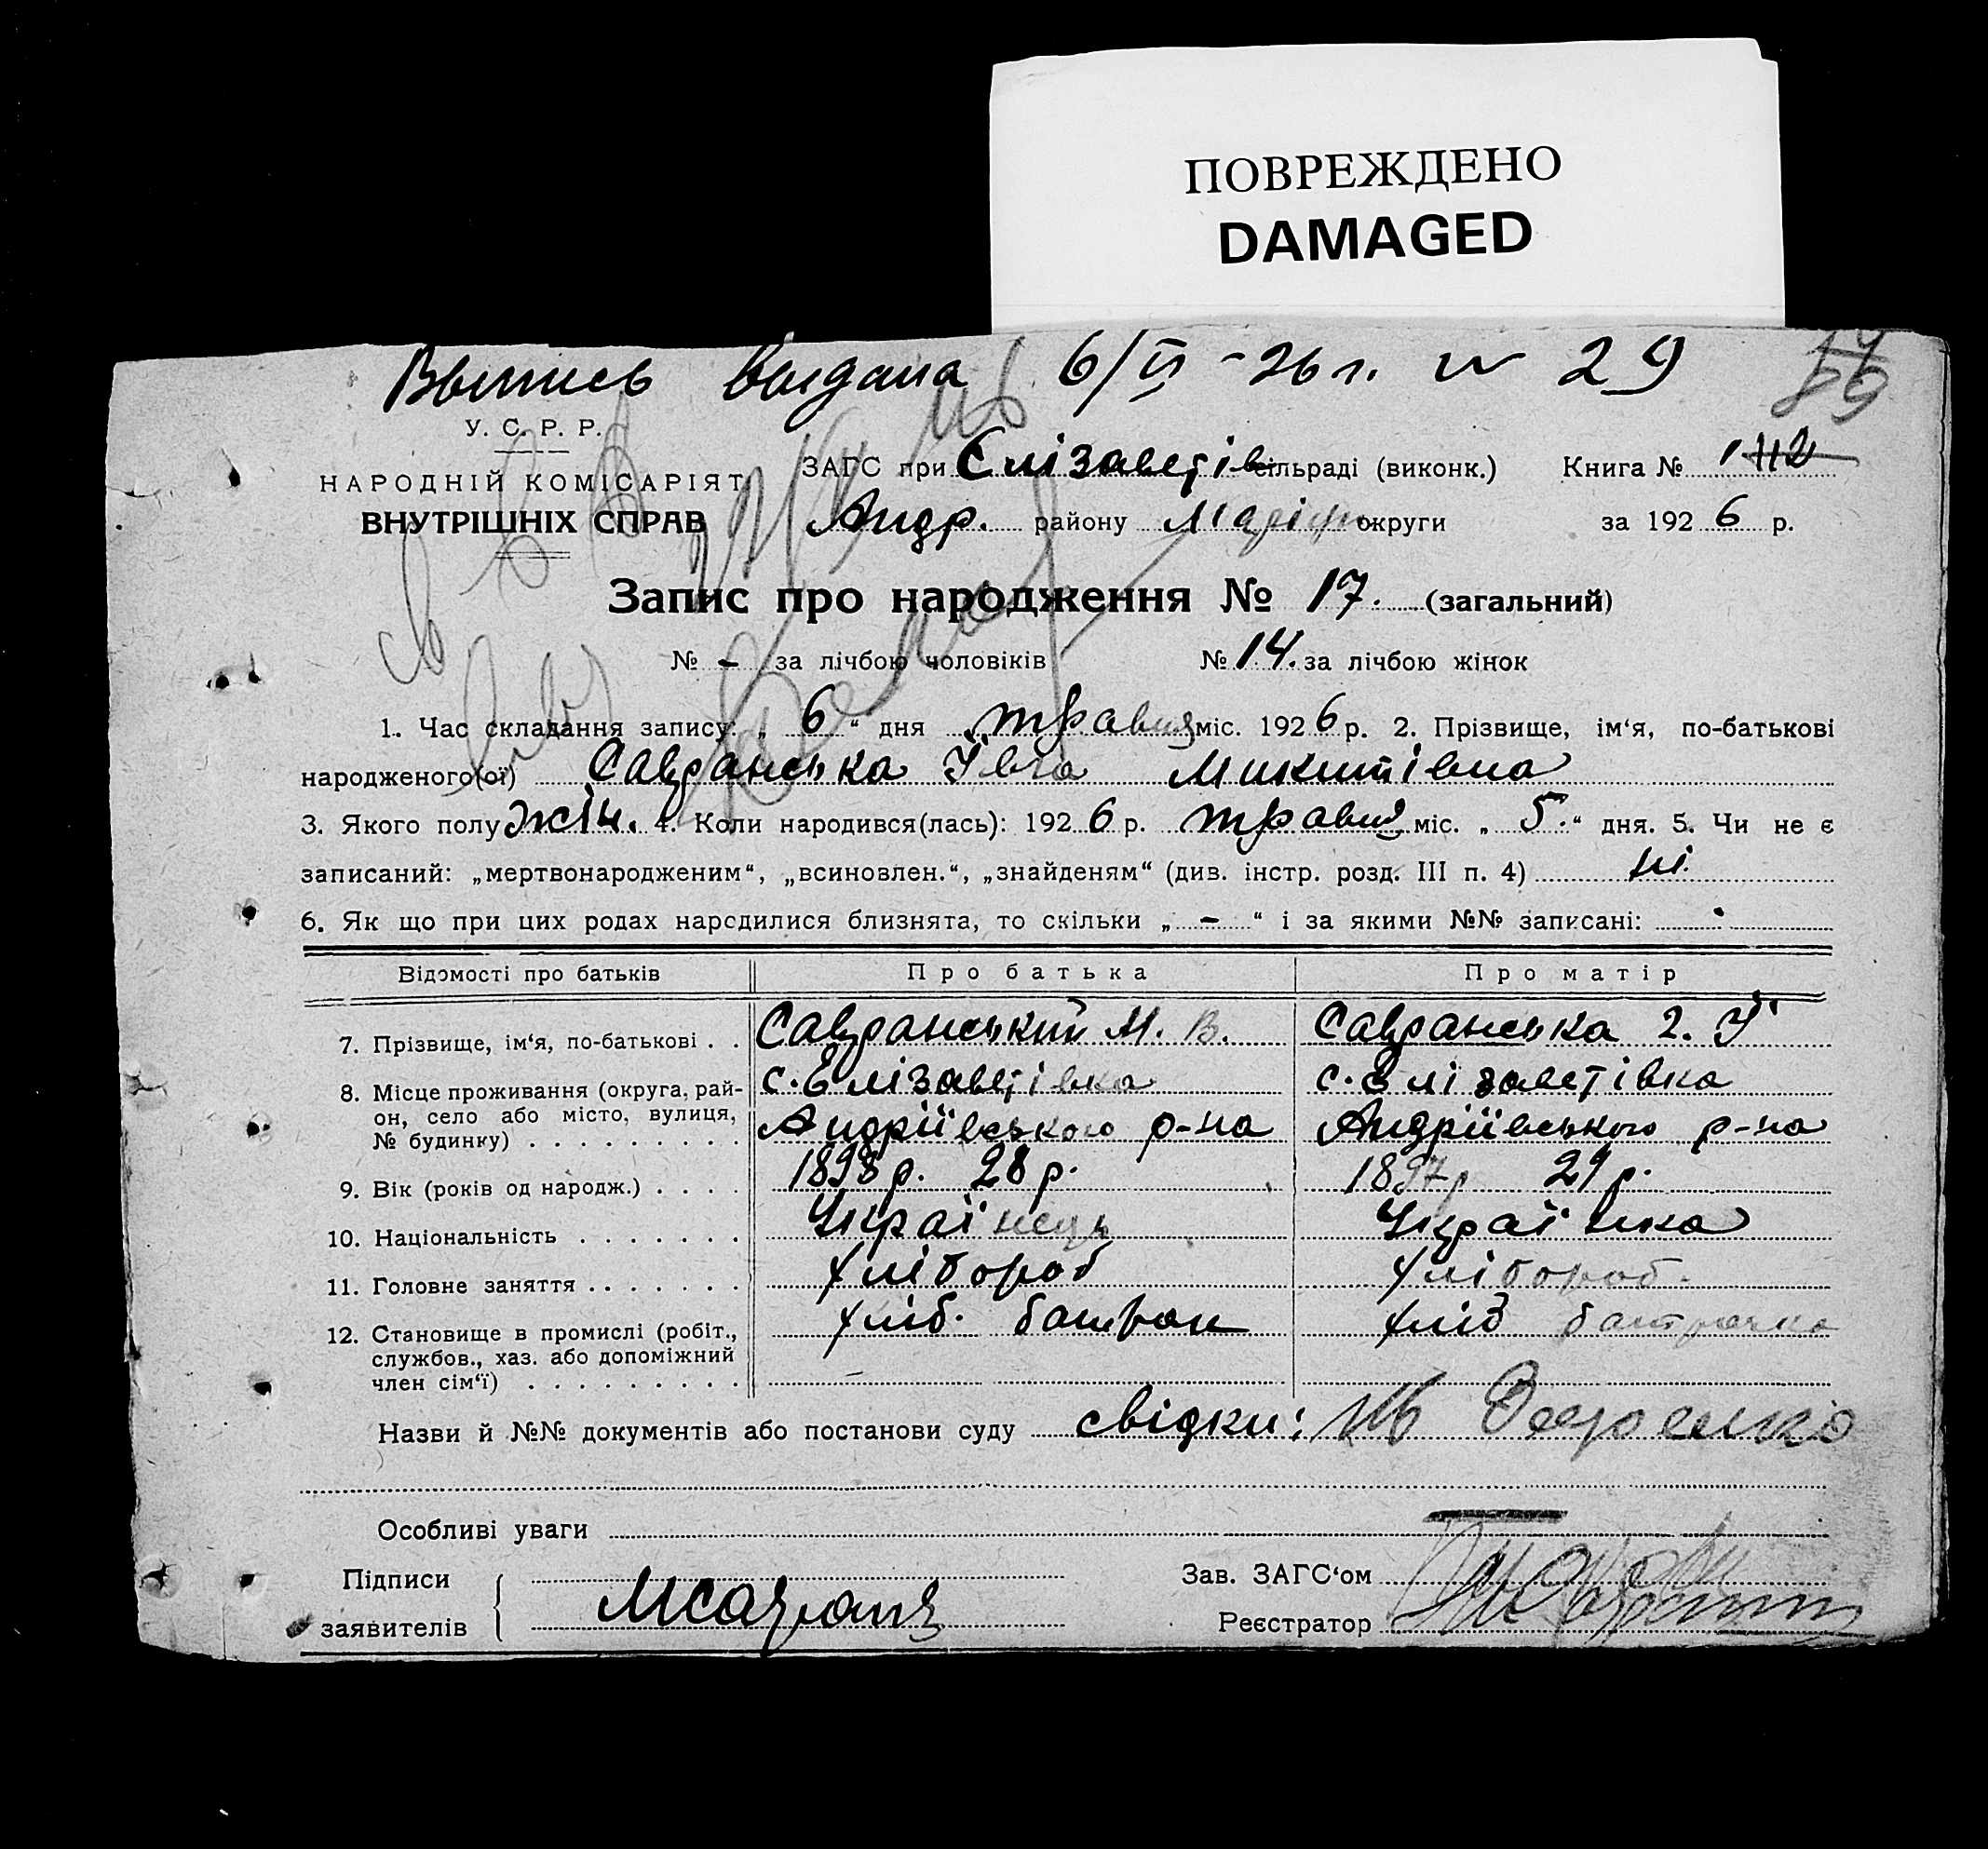 ПОВРЕЖДЕНО
DAMAGED
Выпись выдана 6/VI - 26 г. № 29
У. С. Р. Р.
НАРОДНІЙ КОМІСАРІЯТ
ВНУТРІШНІХ СПРАВ
ЗАГС при Єлізаветів сільраді (виконк.) Книга № 1
Андр. району Маріуп округи за 1926 р.
Запис про народження № 17. (загальний)
№ - за лічбою чоловіків № 14. за лічбою жінок
1. Час складання запису: „ 6 “ дня травня міс. 1926 р. 2. Прізвище, ім‘я, по-батькові
народженого(ої) Савранська Ївга Микитівна
3. Якого полу жін. 4. Коли народився(лась): 1926 р. травня міс. „ 5. “ дня. 5. Чи не є
записаний: „мертвонародженим“, „всиновлен.“, „знайденям“ (див. інстр. розд. III п. 4) ні.
6. Як що при цих родах народилися близнята, то скільки „ - “ і за якими №№ записані:
Відомості про батьків Про батька Про матір
7. Прізвище, ім‘я, по-батькові . . Савранський М. В. Савранська
8. Місце проживання (округа, рай- с. Єлізаветівка с. Єлізаветівка
он, село або місто, вулиця, Андріївського р-на Андріївського р-на
№ будинку) . . . . . . . . .
9. Вік (років од народж.) . . . . 1898 р. 28 р. 1897 р 29 р.
10. Національність . . . . . . . Українець Українка
11. Головне заняття . . . . . . . хлібороб хлібороб.
12. Становище в промислі (робіт., хліб. батрак хліб батрачка
службов., хаз. або допоміжний
член сім‘ї) . . . . . . . . . —
Назви й №№ документів або постанови суду свідки:
Особливі уваги
Підписи
заявителів
Зав. ЗАГС‘ом
Реєстратор